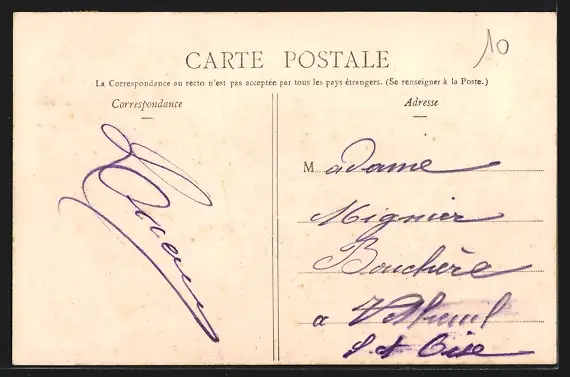 10
CARTE POSTALE
La Correspondance au recto n'est pas acceptée par tous les pays étrangers. (Se renseigner à la Poste.)
Correspondance
Adresse
Madame
Mignier
Bouchère
a
S et Oise